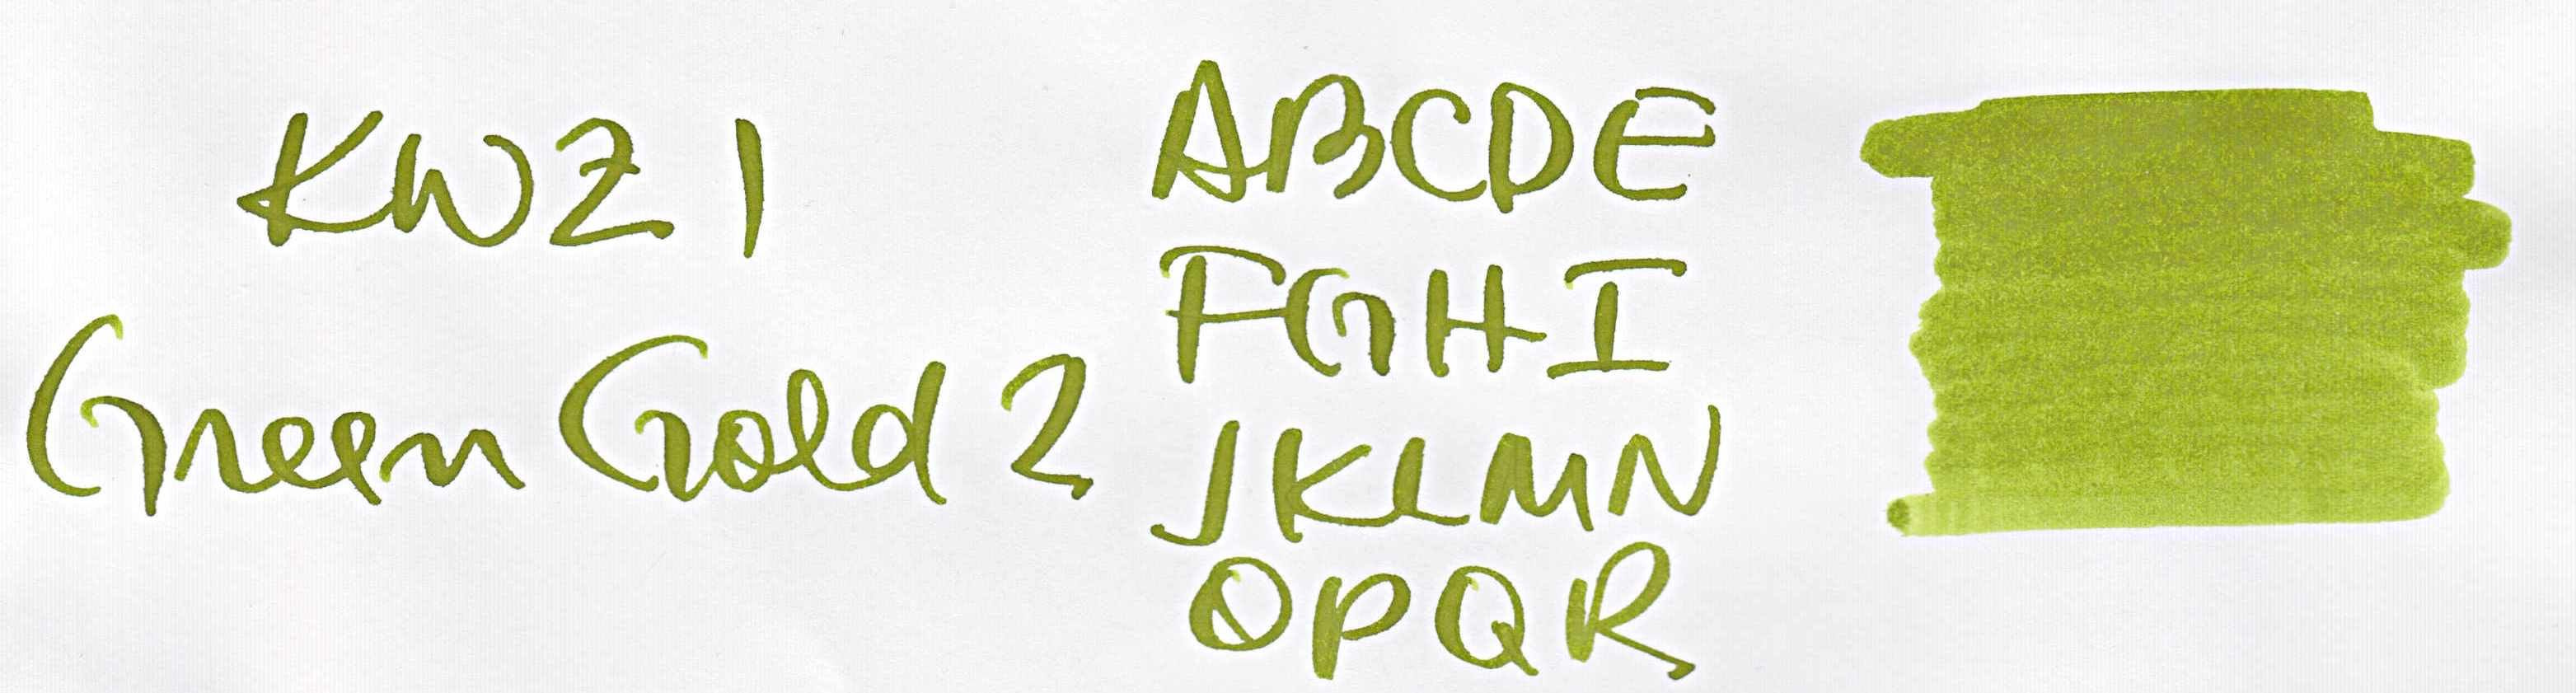 KWZ I
Green Gold 2
ABCDE
FGHI
JKLMN
OPQR